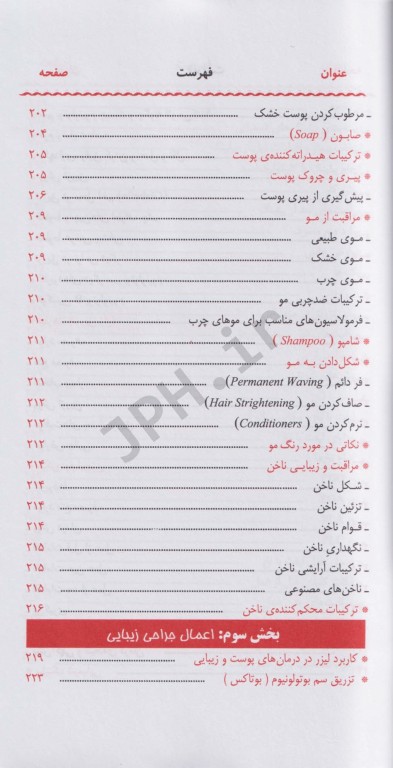 عنوان فهرست صفحه
ـ مرطوب‌کردن پوست خشک ۲۰۲
* صابون ( Soap ) ۲۰۴
* ترکیبات هیدراته‌کننده‌ی پوست ۲۰۵
* پیری و چروک پوست ۲۰۵
ـ پیش‌گیری از پیری پوست ۲۰۶
* مراقبت از مو ۲۰۹
ـ موی طبیعی ۲۰۹
ـ موی خشک ۲۰۹
ـ موی چرب ۲۱۰
ـ ترکیبات ضدچربی مو ۲۱۰
ـ فرمولاسیون‌های مناسب برای موهای چرب ۲۱۰
* شامپو ( Shampoo ) ۲۱۱
* شکل‌دادن به مو ۲۱۱
ـ فر دائم ( Permanent Waving ) ۲۱۱
ـ صاف‌کردن مو ( Hair Strightening ) ۲۱۲
ـ نرم‌کردن مو ( Conditioners ) ۲۱۲
* نکاتی در مورد رنگ مو ۲۱۲
* مراقبت و زیبایی ناخن ۲۱۴
ـ شکل ناخن ۲۱۴
ـ تزئین ناخن ۲۱۴
ـ قوام ناخن ۲۱۴
ـ نگهداری ناخن ۲۱۵
ـ ترکیبات آرایشی ناخن ۲۱۵
ـ ناخن‌های مصنوعی ۲۱۵
* ترکیبات محکم‌کننده‌ی ناخن ۲۱۶
بخش سوم: اعمال جراحی زیبایی
* کاربرد لیزر در درمان‌های پوست و زیبایی ۲۱۹
* تزریق سم بوتولونیوم ( بوتاکس ) ۲۲۳
JPH.ir